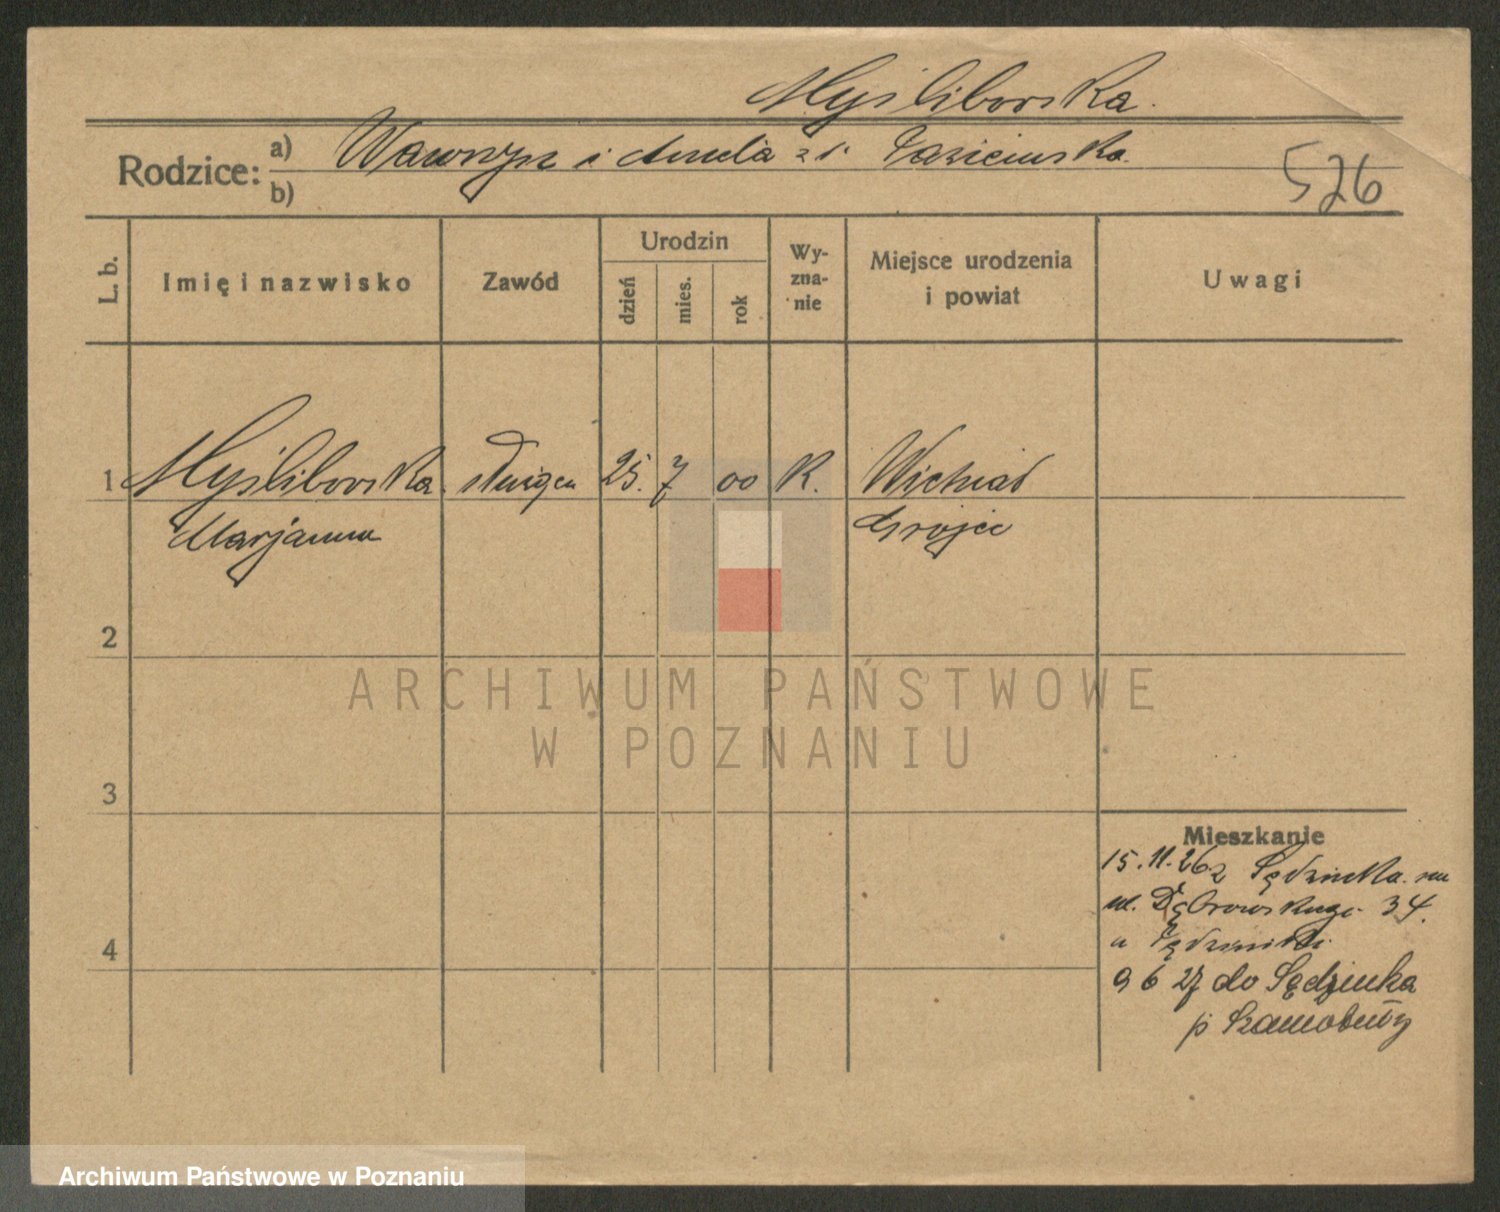 Myśliborska.
Rodzice: a) Wawrzyn i Aniela z d.
b)
576
L. b.
Imię i nazwisko
Zawód
Urodzin
dzień
mies.
rok
Wy-
zna-
nie
Miejsce urodzenia
i powiat
Uwagi
1 Myśliborska służąca 25. 7 00 K.
Marjanna Grójec
2
3
4
Mieszkanie
15.11.26 z Sędzinka na
ul. Dąbrowskiego 34.
u
9 6 27 do Sędzinka
p Szamotuły
ARCHIWUM PAŃSTWOWE
W POZNANIU
Archiwum Państwowe w Poznaniu